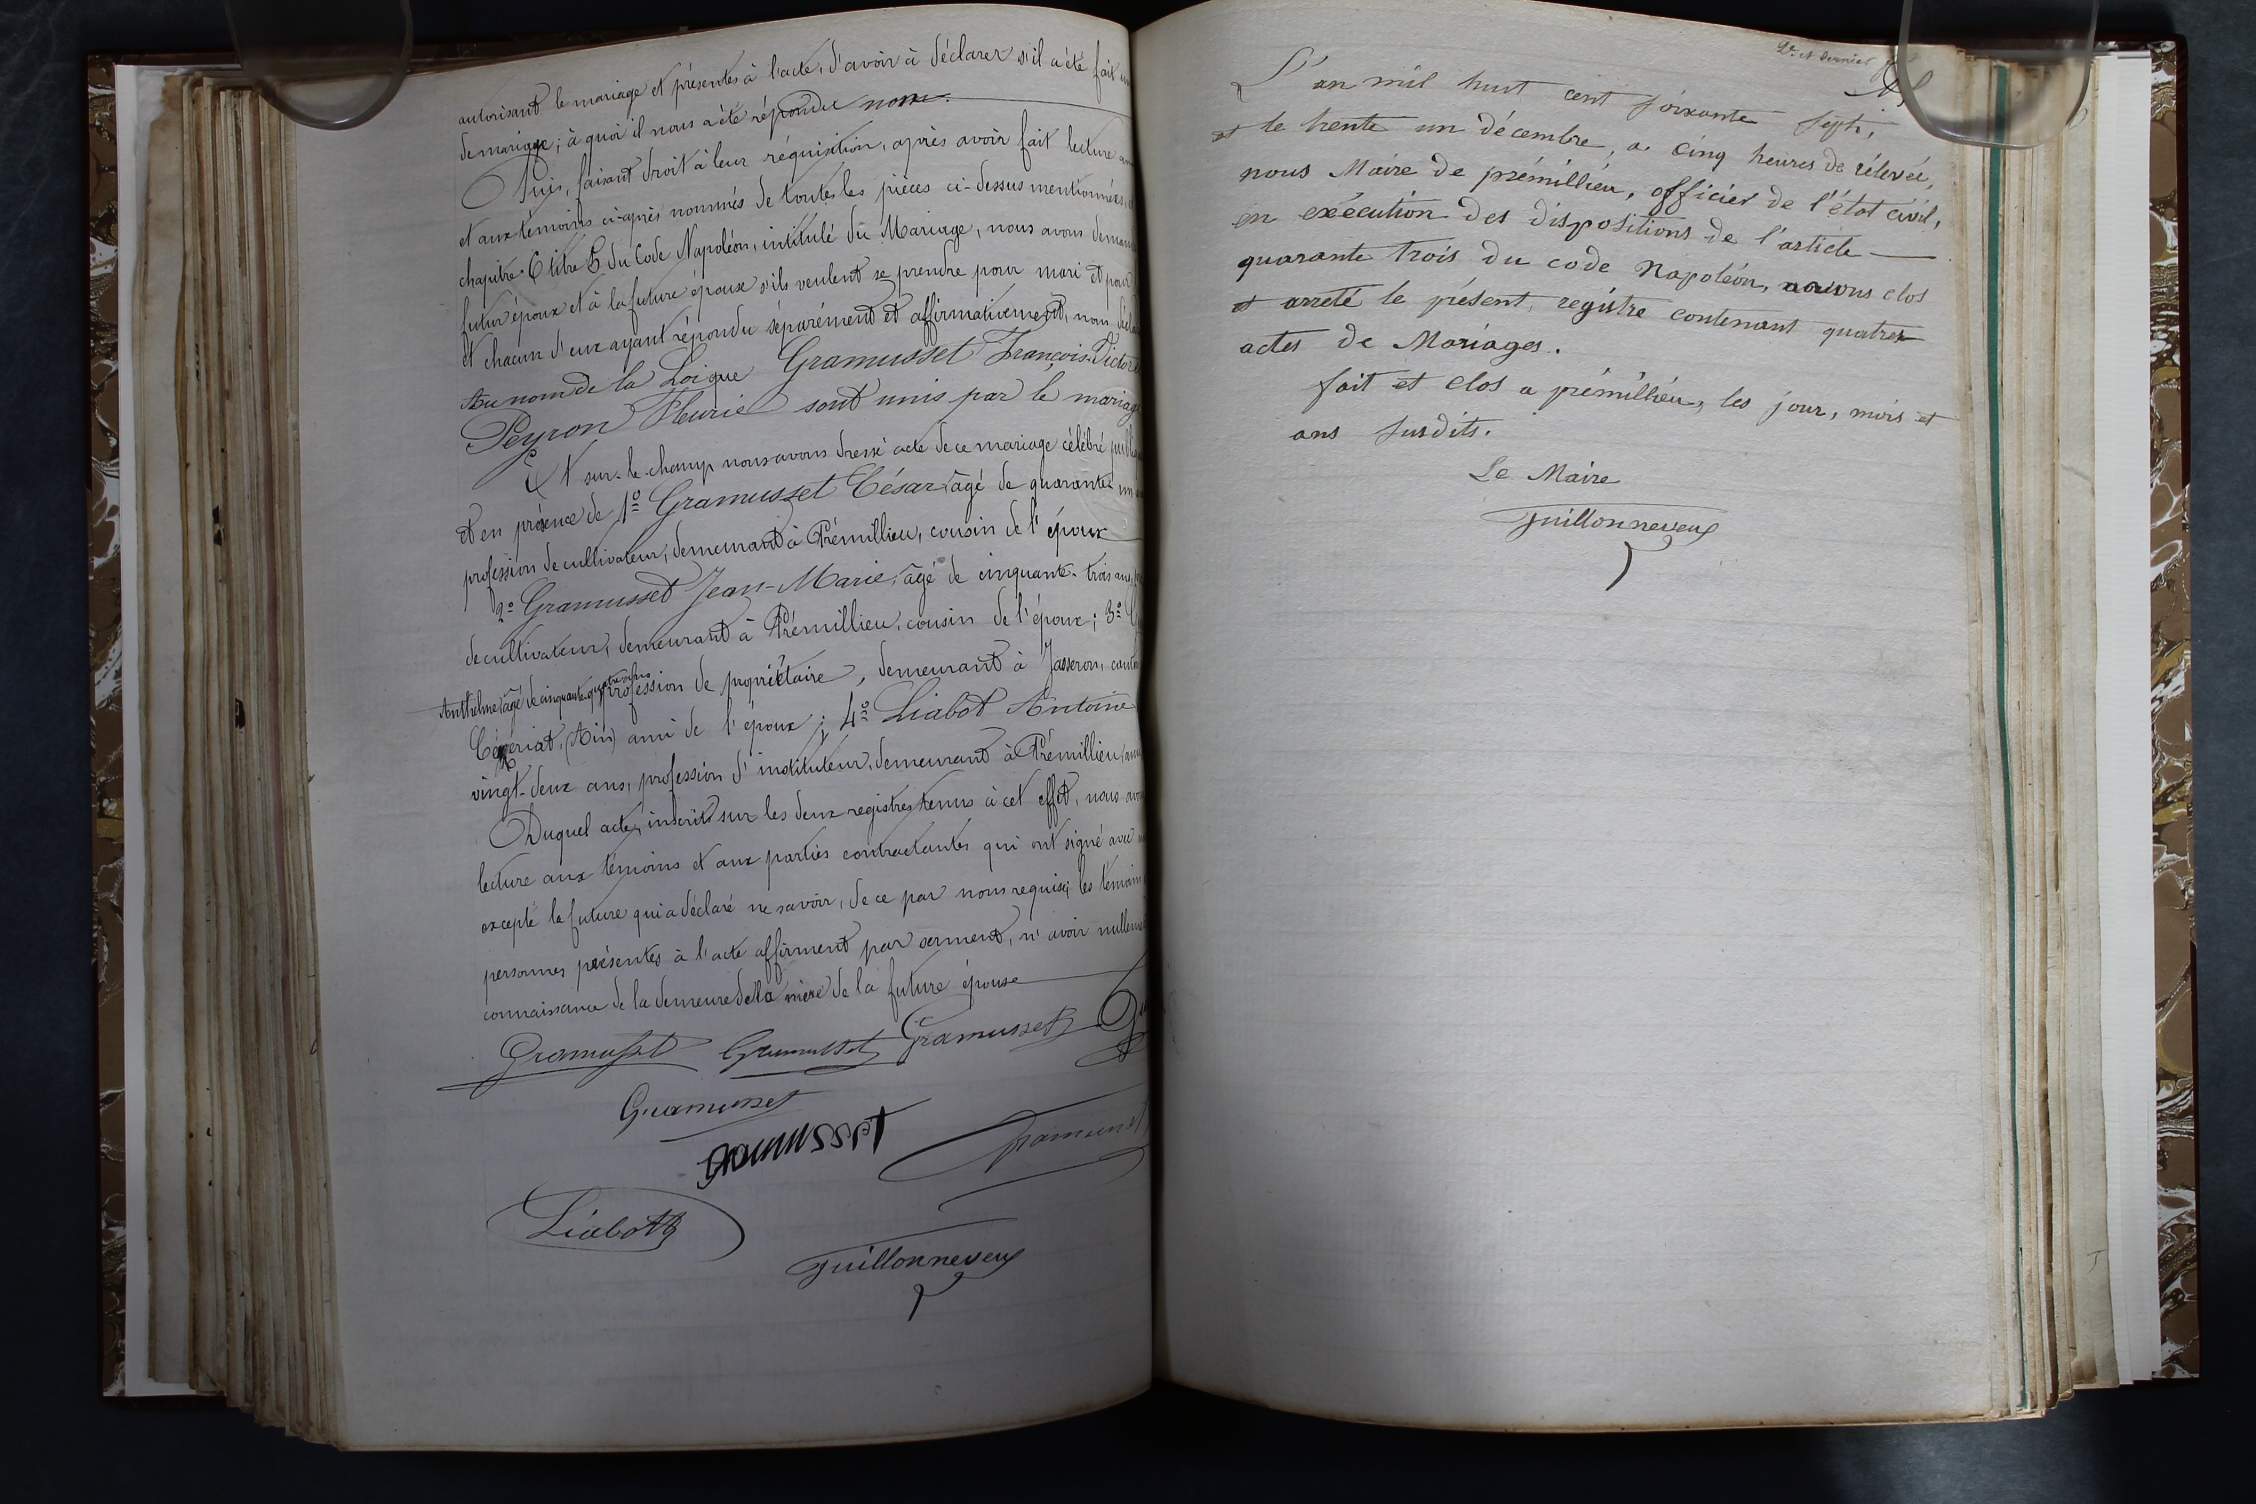 autorisant le mariage et présentes à l'acte, d'avoir à déclarer s'il a été fait un
de mariage; à quoi il nous a été répondu non.
Puis, faisant droit à leur réquisition, après avoir fait lecture
et aux témoins ci-après nommés de toutes les pièces ci-dessus mentionnées,
chapitre 6 titre 5 du Code Napoléon, intitulé du Mariage, nous avons deman
futur époux et à la future épouse s'ils veulent se prendre pour mari et pour
et chacun d'eux ayant répondu séparément et affirmativement, nous
Au nom de la Loi que Gramusset François-Victor
Peyron Fleurie sont unis par le mariage
Et sur-le-champ nous avons dressé acte de ce mariage célébré
et en présence de 1º Gramusset César, âgé de quarante-un
profession de cultivateur, demeurant à Prémillieu, cousin de l'époux
2º Gramusset Jean-Marie, âgé de cinquante-trois ans,
de cultivateur, demeurant à Prémillieu, cousin de l'époux; 3º
Anthelme, âgé de cinquante-quatre ans profession de propriétaire, demeurant à Jasseron, canton
Céyzériat, (Ain) ami de l'époux; 4º Liabot Antoine
vingt-deux ans, profession d'instituteur, demeurant à Prémillieu,
Duquel acte, inscrit sur les deux registres tenus à cet effet, nous avons
lecture aux témoins et aux parties contractantes qui ont signé avec
excepté la future qui a déclaré ne savoir, de ce par nous requise; les témoins
personnes présentes à l'acte affirment par serment, n'avoir nullem
connaissance de la demeure de la mère de la future épouse
Gramusset Gramusset Gramusset
Gramusset
Gramusset Gramusset
Liabot
Guillonneveux
2e et dernier
L'an mil huit cent soixante sept,
et le trente un décembre, a cinq heures de rélevée,
nous Maire de prémillieu, officier de l'état civil,
en exécution des dispositions de l'article
quarante trois du code Napoléon, avons clos
et arreté le présent, registre contenant quatre
actes de Mariages.
fait et clos a prémillieu, les jour, mois et
ans susdits.
Le Maire
Guillonneveux